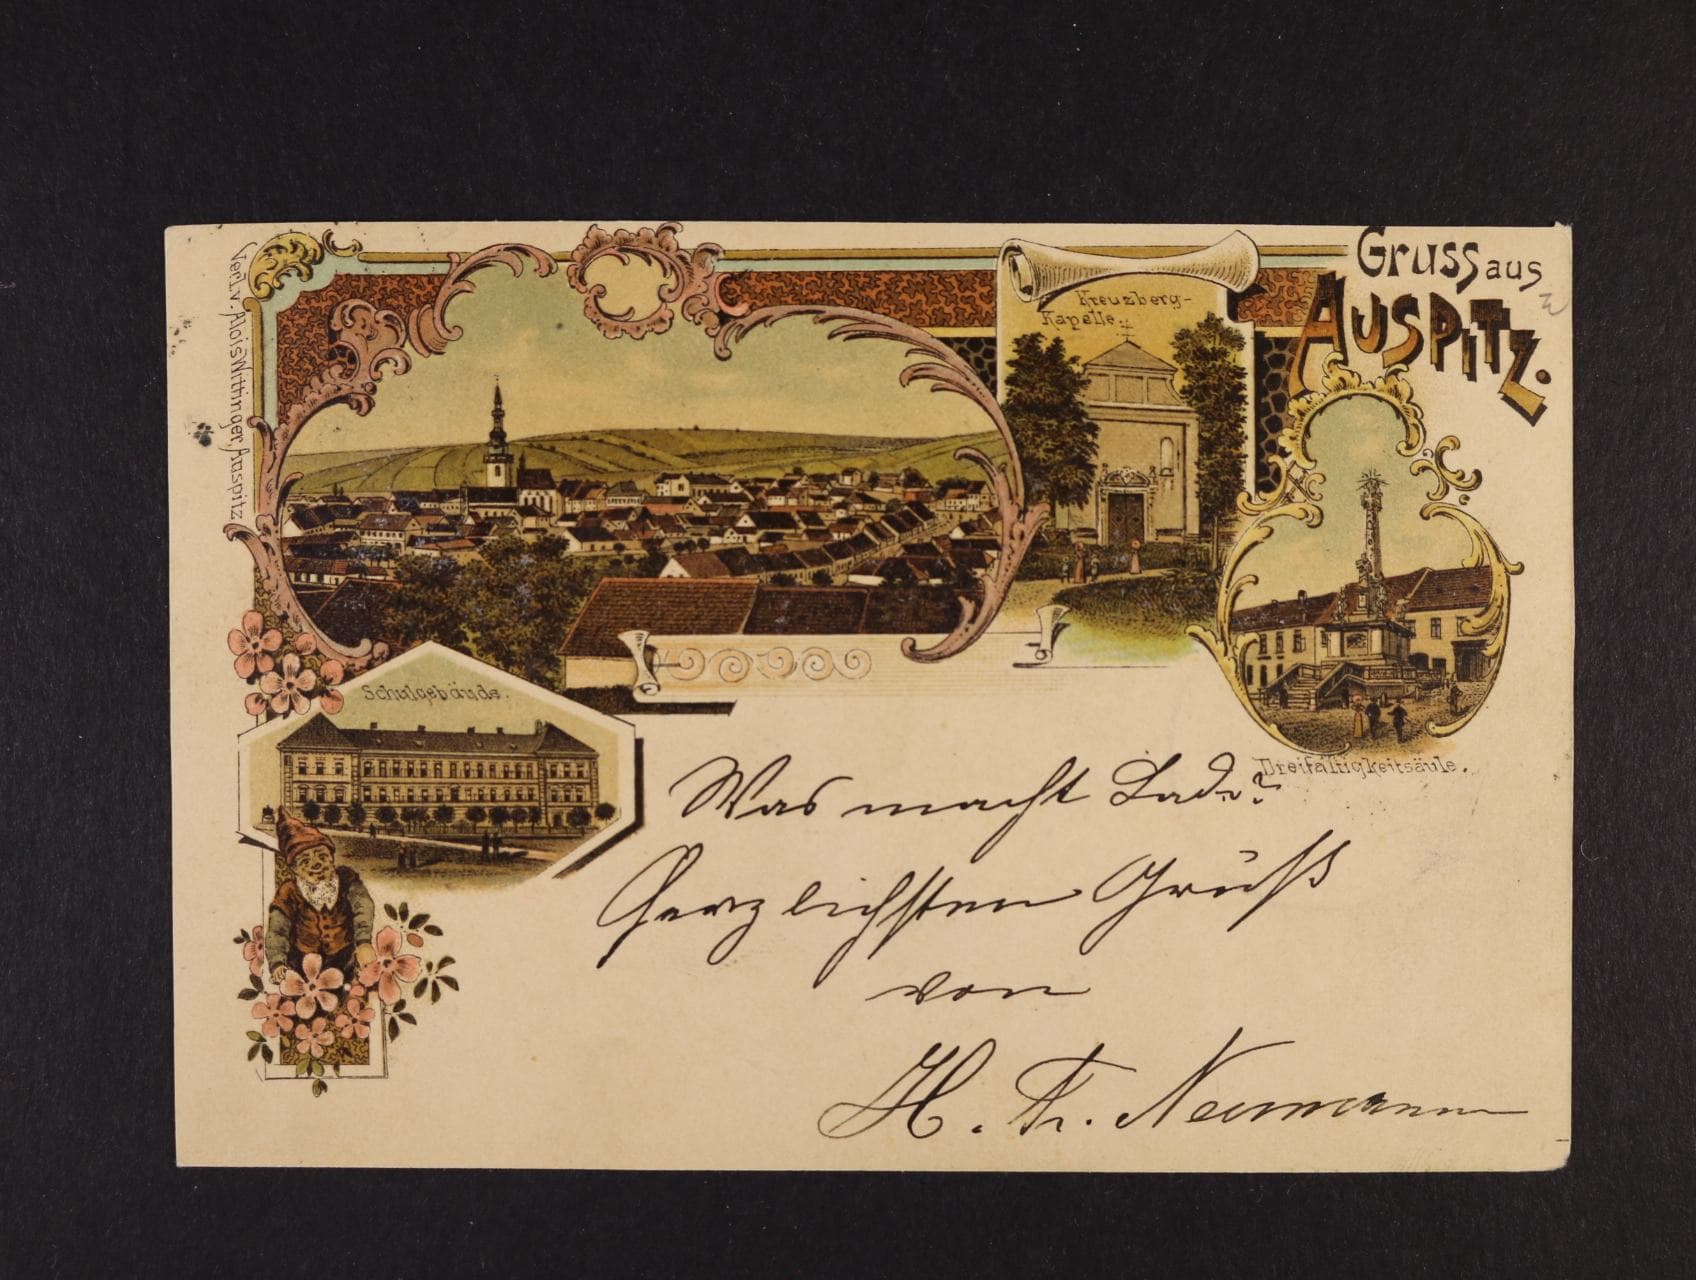 Gruss aus
AUSPITZ.
Kreuzberg-
Kapelle.
Verl. v. Alois Wittinger, Auspitz
Schulgebäude.
Dreifaltigkeitsäule.
Was macht Lado?
Herzlichsten Gruß
von
H. Fr. Neumann